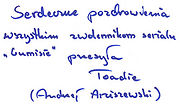 Serdeczne pozdrowienia
wszystkim zwolennikom serialu
„Gumisie” przesyła
Toadie
(Andrzej Arciszewski)